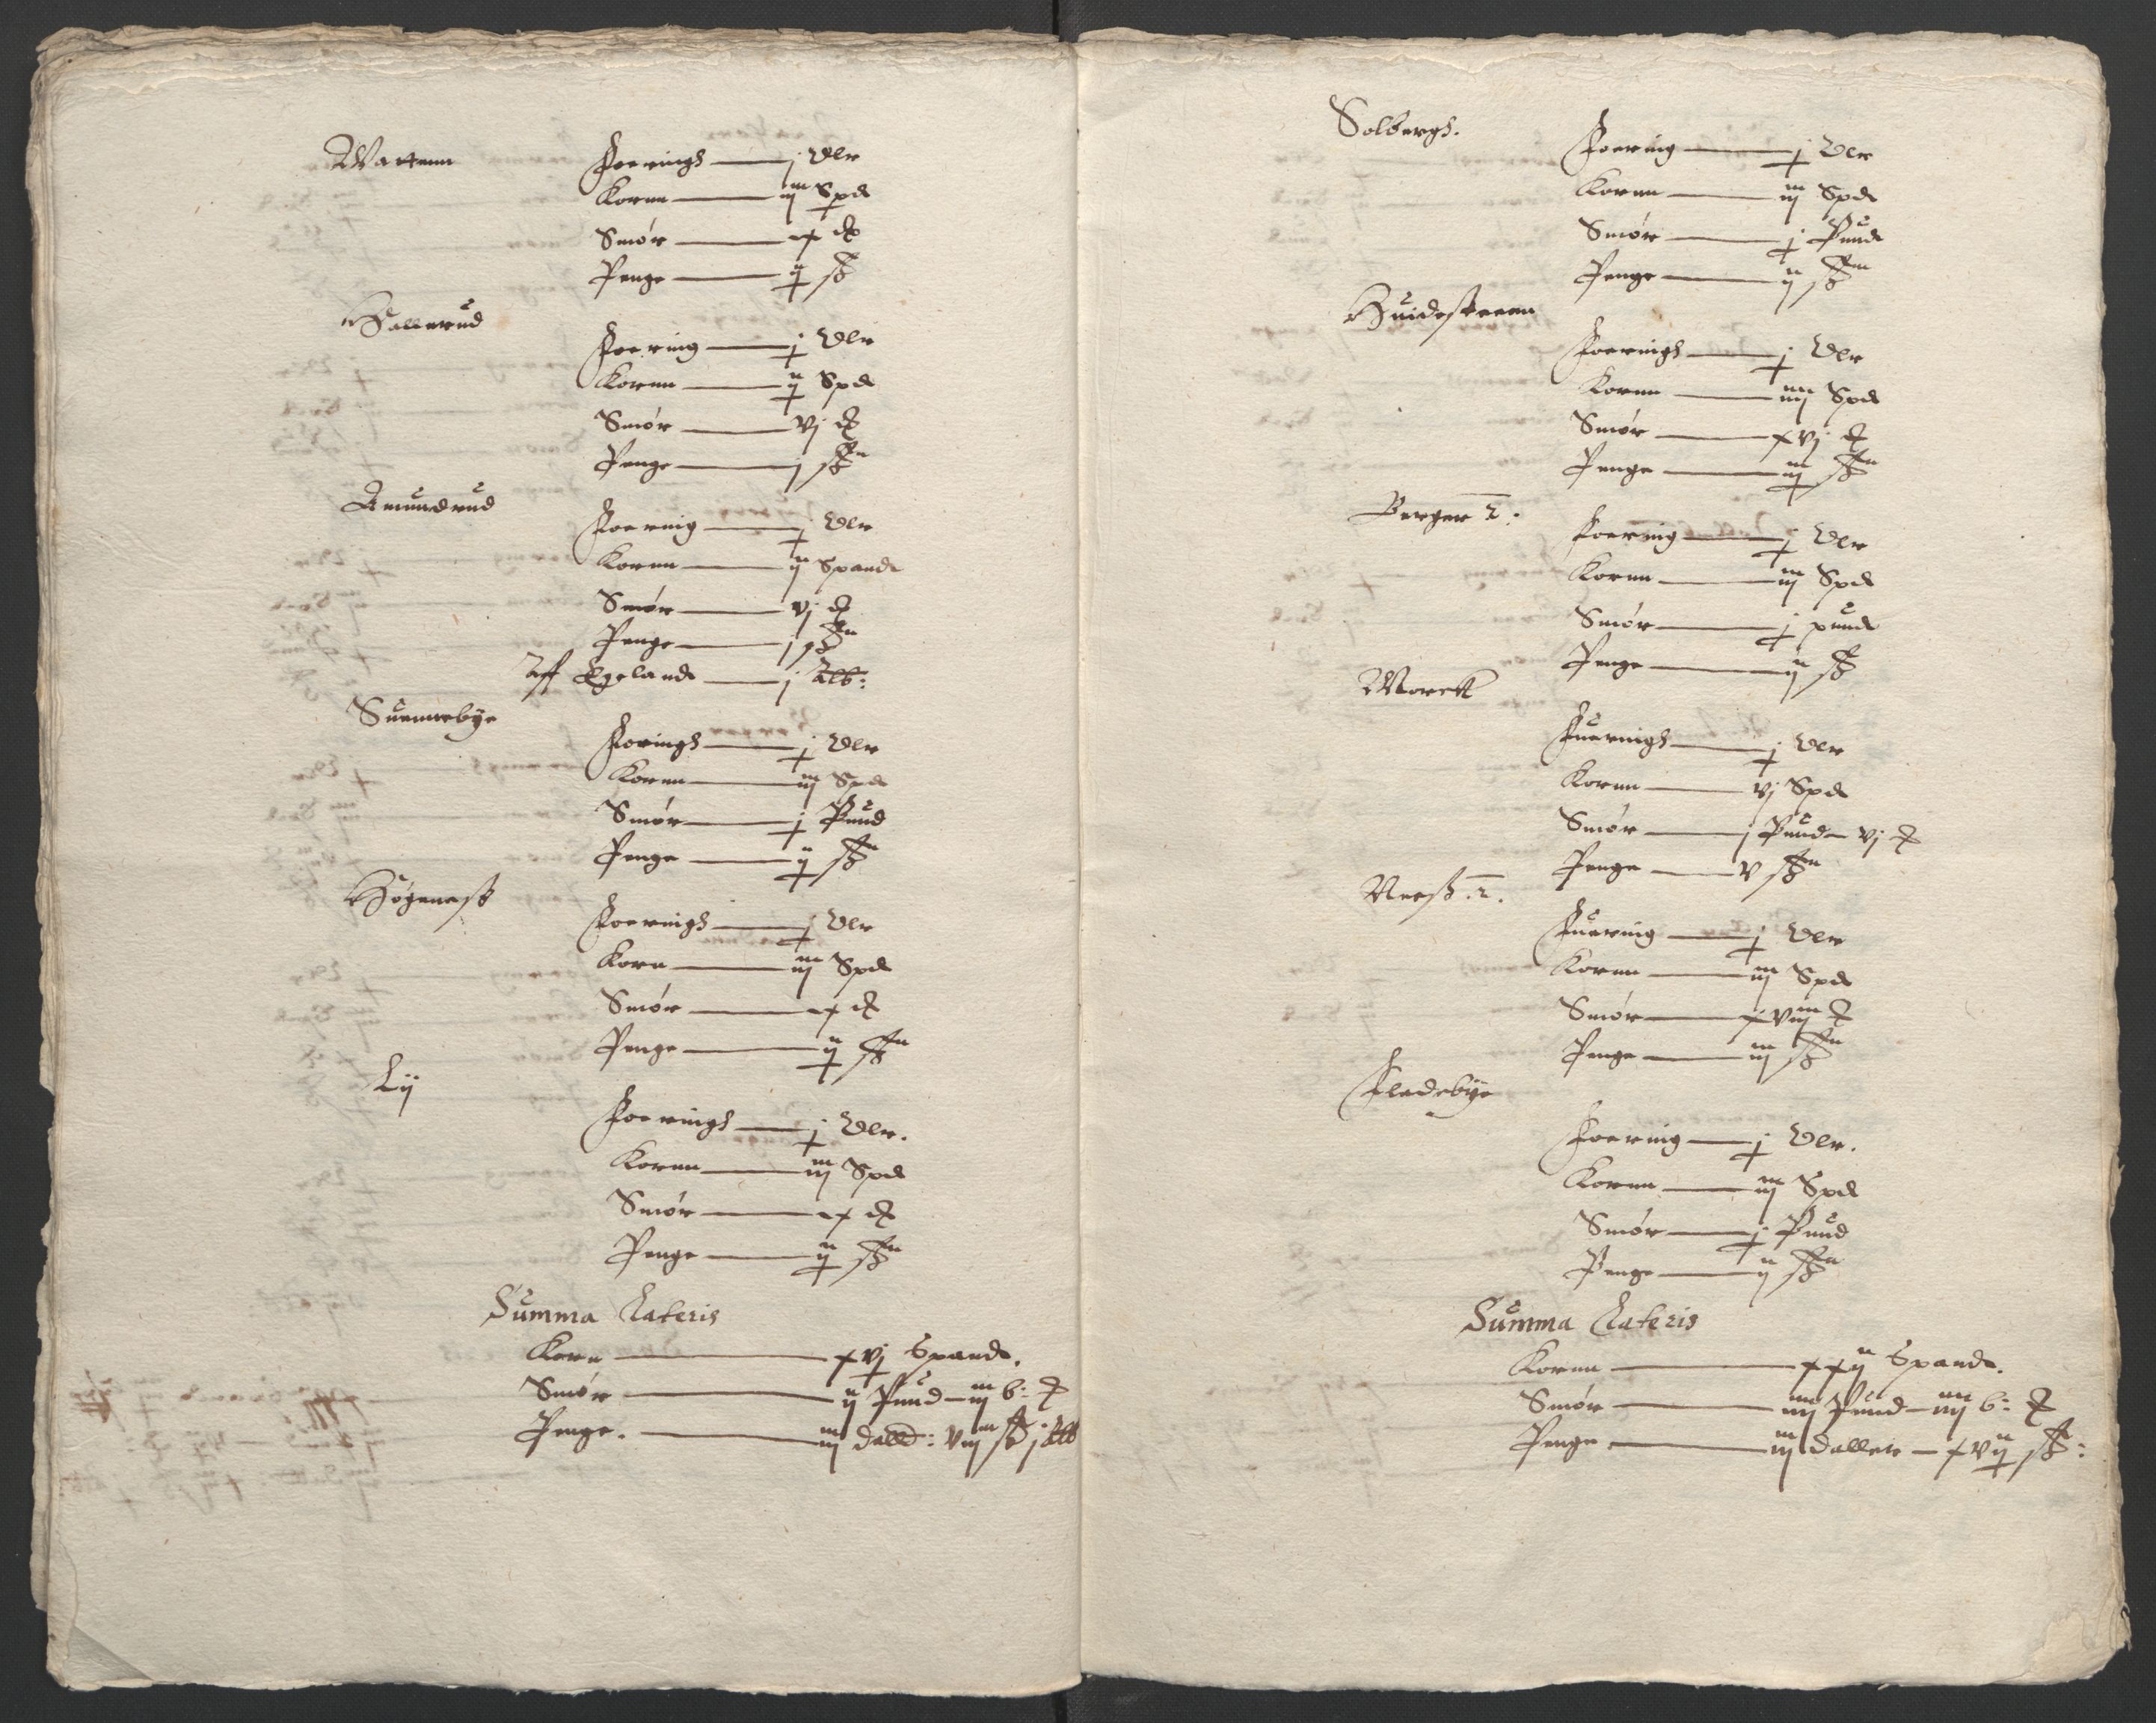 Wattenn
Foeringh — j Dlr
Kornn — iij Spd
Smör — x ℔
Penge — ij sß
Hallerud
Foering — j Dlr
Kornn — ij Spd
Smör — vj ℔
Penge — j sß
Amundrud
Foering — j Dlr
Kornn — ij Spand
Smör — vj ℔
Penge — j sß
Aff Egeland — j alb:
Suennebÿe
Foringh — j Dlr
Kornn — iij Spd
Smör — j Pund
Penge — ij sß
Högeneß
Foeringh — j Dlr
Korn — iij Spd
Smör — x ℔
Penge — ij sß
Lÿ
Foeringh — j Dlr.
Kornn — iij Spd
Smör — x ℔
Penge — ij sß
Summa Lateris
Korn — xvj Spand.
Smör — ij Pund — iij b: ℔
Penge. — iij dall: viij sß j alb
Solbergh.
Foering — j Dlr
Kornn — iij Spd
Smör — j Pund
Penge — ij sß
Huidesteenn
Foeringh — j Dlr
Kornn — iiij Spd
Smör — xvj ℔
Penge — iij sß
Berger 2:
Foering — j Dlr
Kornn — iij Spd
Smör — j pund
Penge — ij sß
Morck
Fueringh — j Dlr
Kornn — vj Spd
Smör — j Pund — vj ℔
Penge — v sß
Neeß .2.
Fuering — j Dlr
Kornn — iij Spd
Smör — xviij ℔
Penge — iij sß
Fladebÿe
Foering — j Dlr.
Kornn — iij Spd
Smör — j Pund
Penge — ij sß
Summa Lateris
Kornn — xxij Spand.
Smör — iiij Pund — iiij b: ℔
Penge — iij daller — xvij sß: